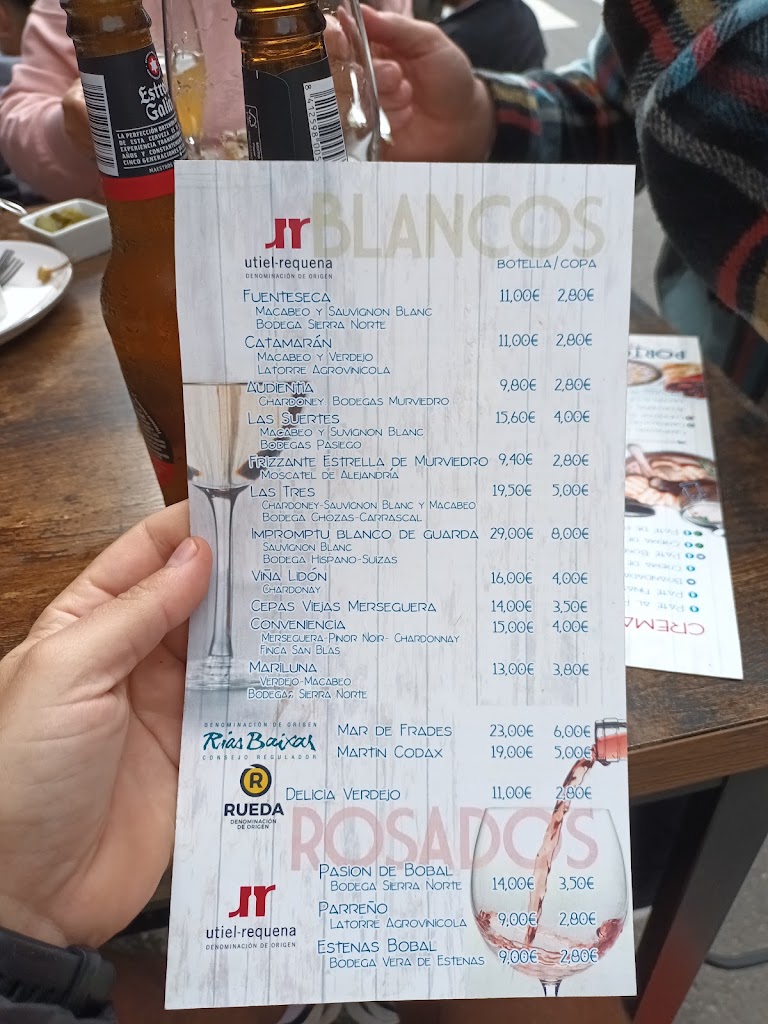 Estrella
Galicia
LA PERFECCIÓN
DE ESTA CERVEZA
CINCO GENERACIONES
BLANCOS
utiel-requena
DENOMINACIÓN DE ORIGEN
BOTELLA/COPA
FUENTESECA 11,00€ 2,80€
MACABEO Y SAUVIGNON BLANC
BODEGA SIERRA NORTE
CATAMARÁN 11,00€ 2,80€
MACABEO Y VERDEJO
LATORRE AGROVINICOLA
AUDIENTIA 9,80€ 2,80€
CHARDONEY BODEGAS MURVIEDRO
LAS SUERTES 15,60€ 4,00€
MACABEO Y SUVIGNON BLANC
BODEGAS PASIEGO
FRIZZANTE ESTRELLA DE MURVIEDRO 9,40€ 2,80€
MOSCATEL DE ALEJANDRÍA
LAS TRES 19,50€ 5,00€
CHARDONEY-SAUVIGNON BLANC Y MACABEO
BODEGA CHOZAS-CARRASCAL
IMPROMPTU BLANCO DE GUARDA 29,00€ 8,00€
SAUVIGNON BLANC
BODEGA HISPANO-SUIZAS
VIÑA LIDÓN 16,00€ 4,00€
CHARDONAY
CEPAS VIEJAS MERSEGUERA 14,00€ 3,50€
CONVENIENCIA 15,00€ 4,00€
MERSEGUERA-PINOR NOIR- CHARDONNAY
FINCA SAN BLAS
MARILUNA 13,00€ 3,80€
VERDEJO-MACABEO
BODEGAS SIERRA NORTE
DENOMINACIÓN DE ORIGEN
Rías Baixas
CONSEJO REGULADOR
MAR DE FRADES 23,00€ 6,00€
MARTIN CODAX 19,00€ 5,00€
R
RUEDA
DENOMINACIÓN
DE ORIGEN
DELICIA VERDEJO 11,00€ 2,80€
ROSADOS
PASION DE BOBAL 14,00€ 3,50€
BODEGA SIERRA NORTE
utiel-requena
DENOMINACIÓN DE ORIGEN
PARREÑO 9,00€ 2,80€
LATORRE AGROVINÍCOLA
ESTENAS BOBAL 9,00€ 2,80€
BODEGA VERA DE ESTENAS
CREMA